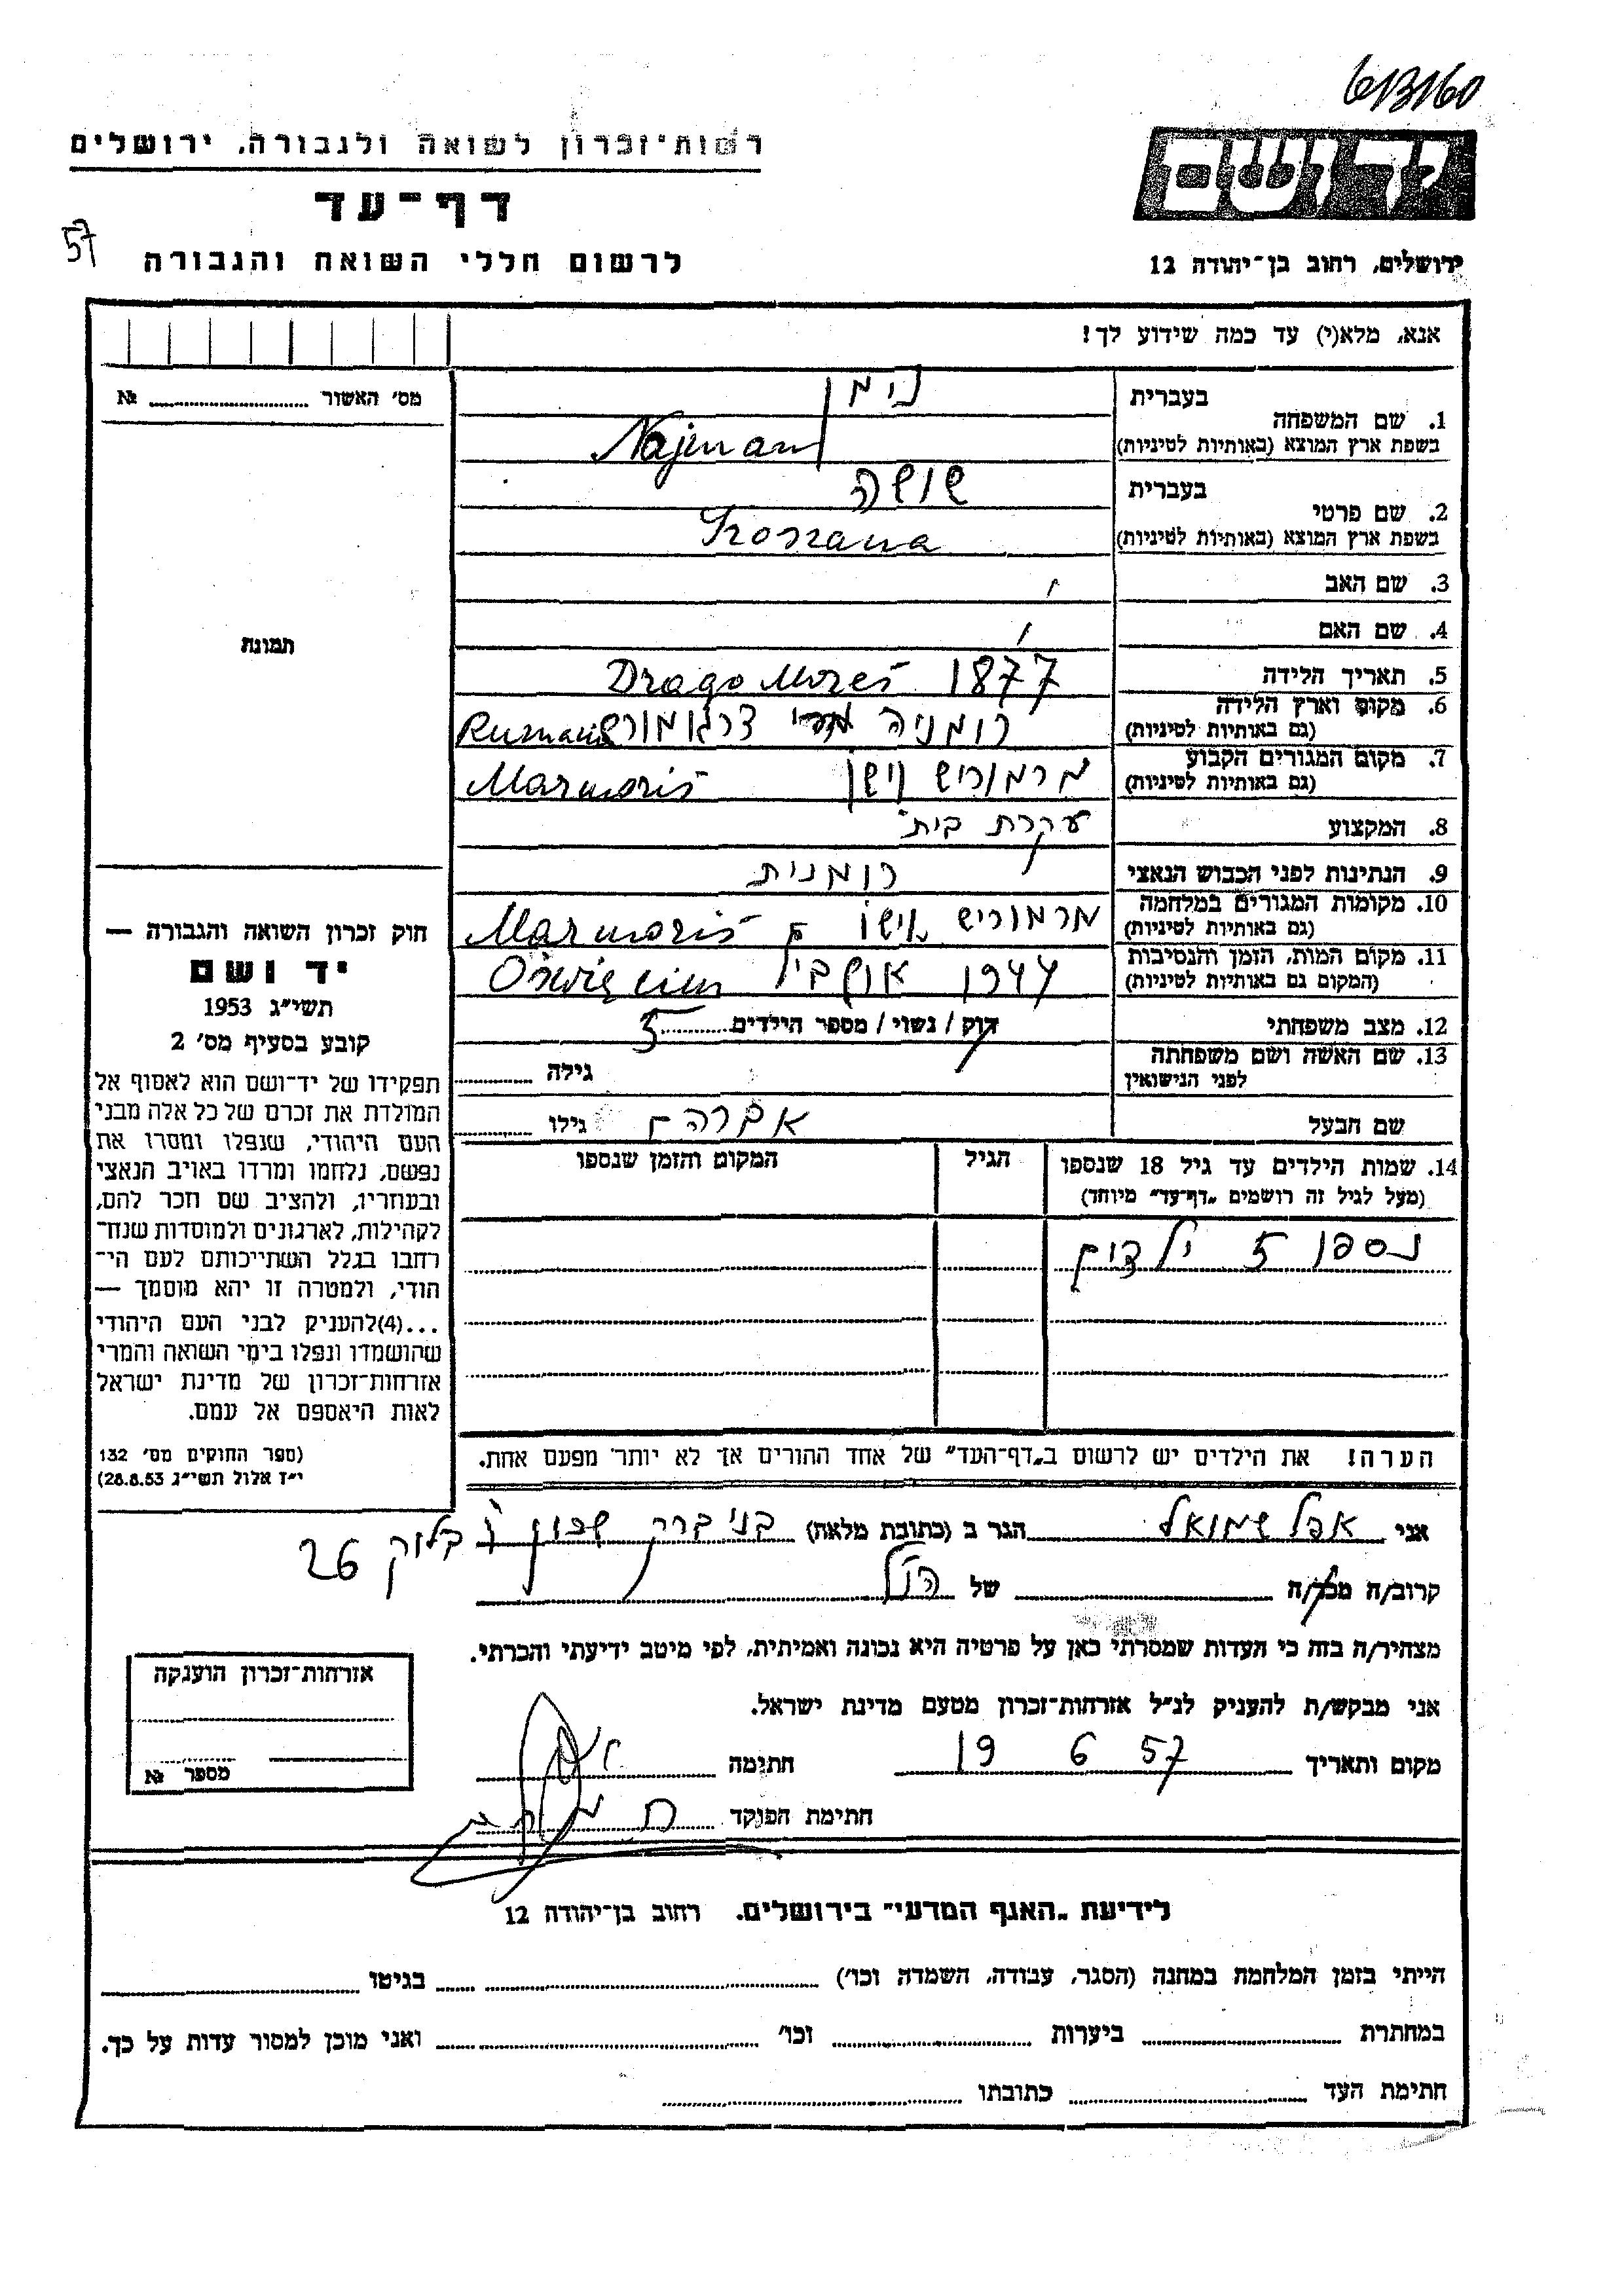 613160
רשות-זכרון לשואה ולגבורה, ירושלים
דף-עד
57
לרשום חללי השואה והגבורה
ירושלים, רחוב בן-יהודה 12
אנא, מלא(י) עד כמה שידוע לך!
מס' האשור № 
1. שם המשפחה
בעברית נימן
בשפת ארץ המוצא (באותיות לטיניות) Najman
2. שם פרטי
בעברית שושה
בשפת ארץ המוצא (באותיות לטיניות)
3. שם האב
4. שם האם
5. תאריך הלידה 1877 Dragomoreš
6. מקום וארץ הלידה
(גם באותיות לטיניות) רומניה דרגומורש
7. מקום המגורים הקבוע
(גם באותיות לטיניות) מרמוריש Marmoriš
8. המקצוע עקרת בית
9. הנתינות לפני הכבוש הנאצי רומנית
10. מקומות המגורים במלחמה
(גם באותיות לטיניות) מרמוריש Marmoriš
11. מקום המות, הזמן והנסיבות
(המקום גם באותיות לטיניות) 1944 Oświęcim
12. מצב משפחתי רוק/ נשוי/ מספר הילדים 5
13. שם האשה ושם משפחתה
לפני הנישואין גילה
שם הבעל אברהם גילו
14. שמות הילדים עד גיל 18 שנספו
(מעל לגיל זה רושמים "דף-עד" מיוחד)
הגיל
המקום והזמן שנספו
נספו 5 ילדים
הערה! את הילדים יש לרשום ב"דף-העד" של אחד ההורים אך לא יותר מפעם אחת.
תמונה
חוק זכרון השואה והגבורה —
יד ושם
תשי"ג 1953
קובע בסעיף מס' 2
תפקידו של יד-ושם הוא לאסוף אל
המולדת את זכרם של כל אלה מבני
העם היהודי, שנפלו ומסרו את
נפשם, נלחמו ומרדו באויב הנאצי
ובעוזריו, ולהציב שם וזכר להם,
לקהילות, לארגונים ולמוסדות שנח-
רבו בגלל השתייכותם לעם הי-
הודי, ולמטרה זו יהא מוסמך —
...(4)להעניק לבני העם היהודי
שהושמדו ונפלו בימי השואה והמרי
אזרחות-זכרון של מדינת ישראל
לאות היאספם אל עמם.
(ספר החוקים מס' 132
י"ז אלול תשי"ג 28.8.53)
אני אפל שמואל הגר ב (כתובת מלאה) בני ברק שכון בלוק 26
קרוב/ה מכר/ה של הנ"ל
מצהיר/ה בזה כי העדות שמסרתי כאן על פרטיה היא נכונה ואמיתית, לפי מיטב ידיעתי והכרתי.
אני מבקש/ת להעניק לנ"ל אזרחות-זכרון מטעם מדינת ישראל.
מקום ותאריך 19 6 57 חתימה
חתימת הפוקד
אזרחות-זכרון הוענקה
מספר №
לידיעת "האגף המדעי" בירושלים. רחוב בן-יהודה 12
הייתי בזמן המלחמה במחנה (הסגר, עבודה, השמדה וכו') בגיטו
במחתרת ביערות וכו' ואני מוכן למסור עדות על כך.
חתימת העד כתובתו